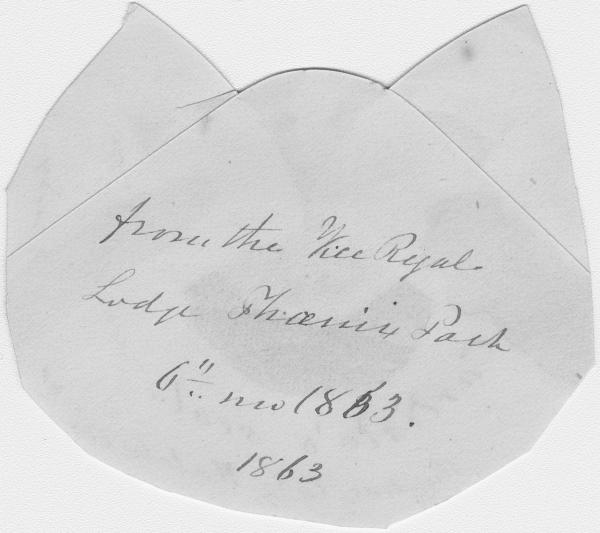 from the Vice Regal
Lodge Phœnix Park
6" mo 1863.
1863